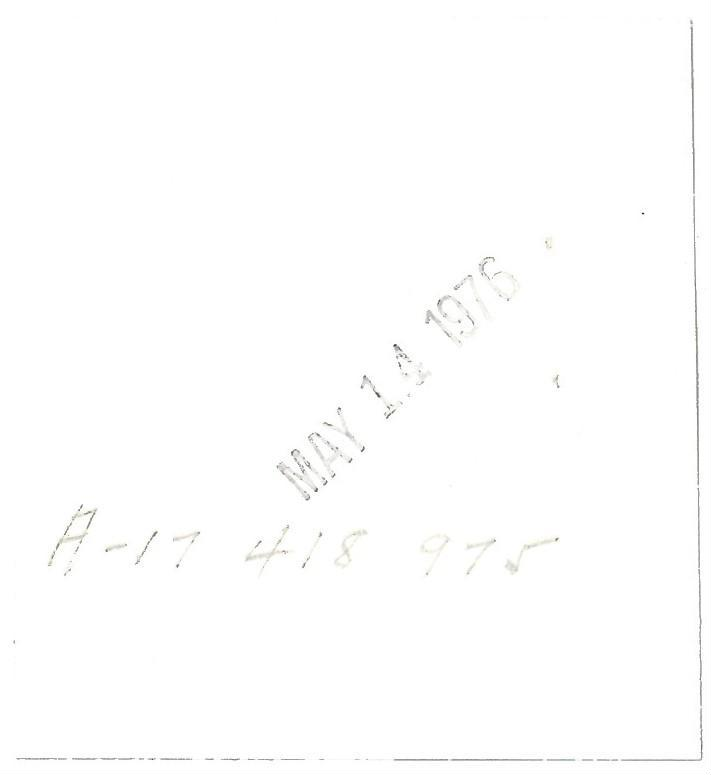 MAY 14 1976
A-17 418 975